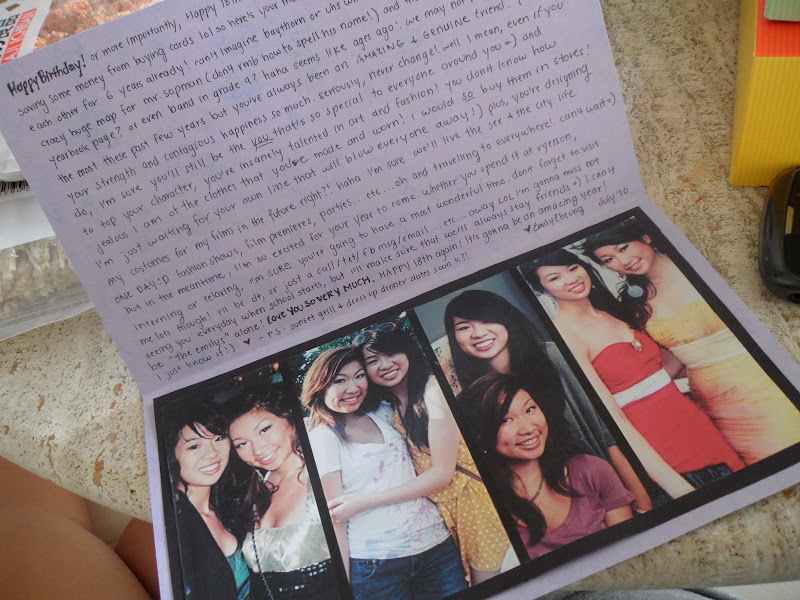 Happy Birthday! or more importantly, Happy 18th
saving some money from buying cards lol so here's your
each other for 6 years already! can't imagine baythorn or uhs
crazy huge map for mr. sopman (don't rmb how to spell his name!) and
yearbook page? or even band in grade 9? haha seems like ages ago! we may not
the most these past few years but you've always been an AMAZING & GENUINE friend.
your strength and contagious happiness so much. seriously, never change! well I mean, even if you
do, I'm sure you'll still be the you that's so special to everyone around you =) and
to top your character, you're insanely talented in art and fashion! you don't know how
jealous I am of the clothes that you've made and worn! I would so buy them in stores!
I'm just waiting for your own line that will blow everyone away!) plus, you're designing
my costumes for my films in the future right?! haha I'm sure we'll live the sex & the city life
ONE DAY:D fashion shows, film premieres, parties... etc... oh and travelling to everywhere! can't wait =)
but in the meantime, I'm so excited for your year to come. whether you spend it at ryerson,
interning or relaxing, I'm sure you're going to have a most wonderful time. don't forget to visit
me lots though! i'll be dt, or just a call/txt/fb msg/email... etc... away LOL I'm gonna miss not
seeing you everyday when school starts, but i'll make sure that we'll always stay friends =) I can't
be "the emilys" alone! LOVE YOU SO VERY MUCH. HAPPY 18th again! it's gonna be an amazing year!
I just know it :) ♥ - P.S. sunset grill & dress up dinner dates soon k?! ♥ Emily Cheung July '10